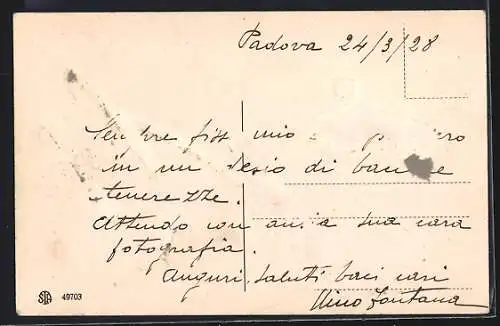 Padova 24/3/28
Sempre fiss mio pensiero
in un desio di baci e
tenerezze.
Attendo con ansia sua cara
fotografia.
Auguri Saluti baci cari
Nino Fontana
STA 49703